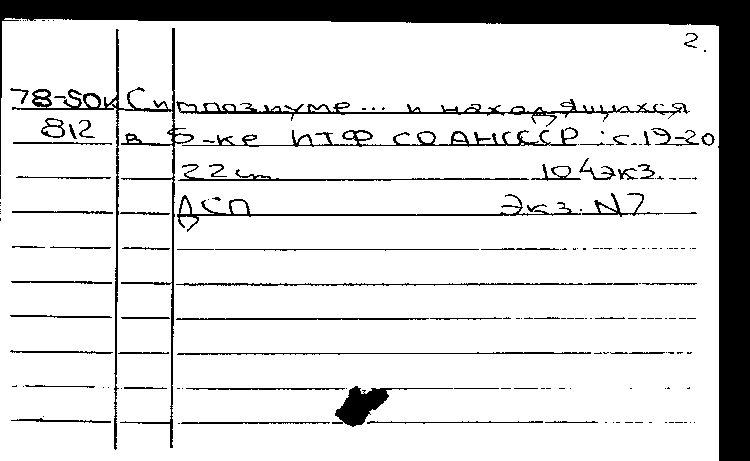 2.
78-50к Симпозиуме... и находящихся
812 в б-ке ИТФ СО АН СССР : с.19-20
22 см 104 экз.
ДСП Экз. N 7